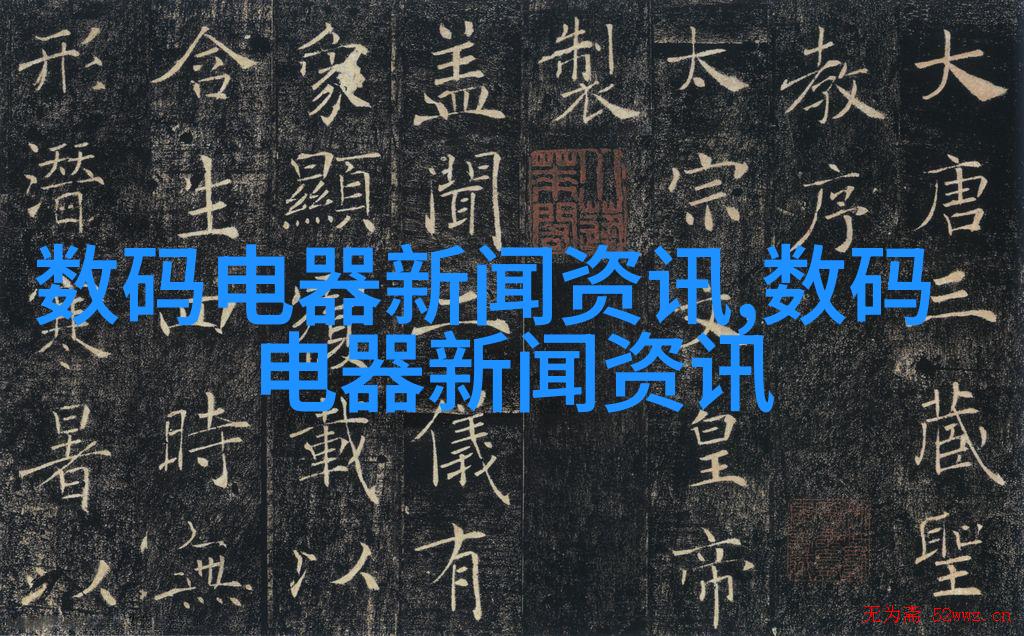 数码电器新闻资讯,数码
电器新闻资讯
大唐三藏聖
教序
太宗文皇帝
製
盖聞二儀有
象顯覆載以
含生四時無
形潛寒暑以
无为斋 52wwz.cn